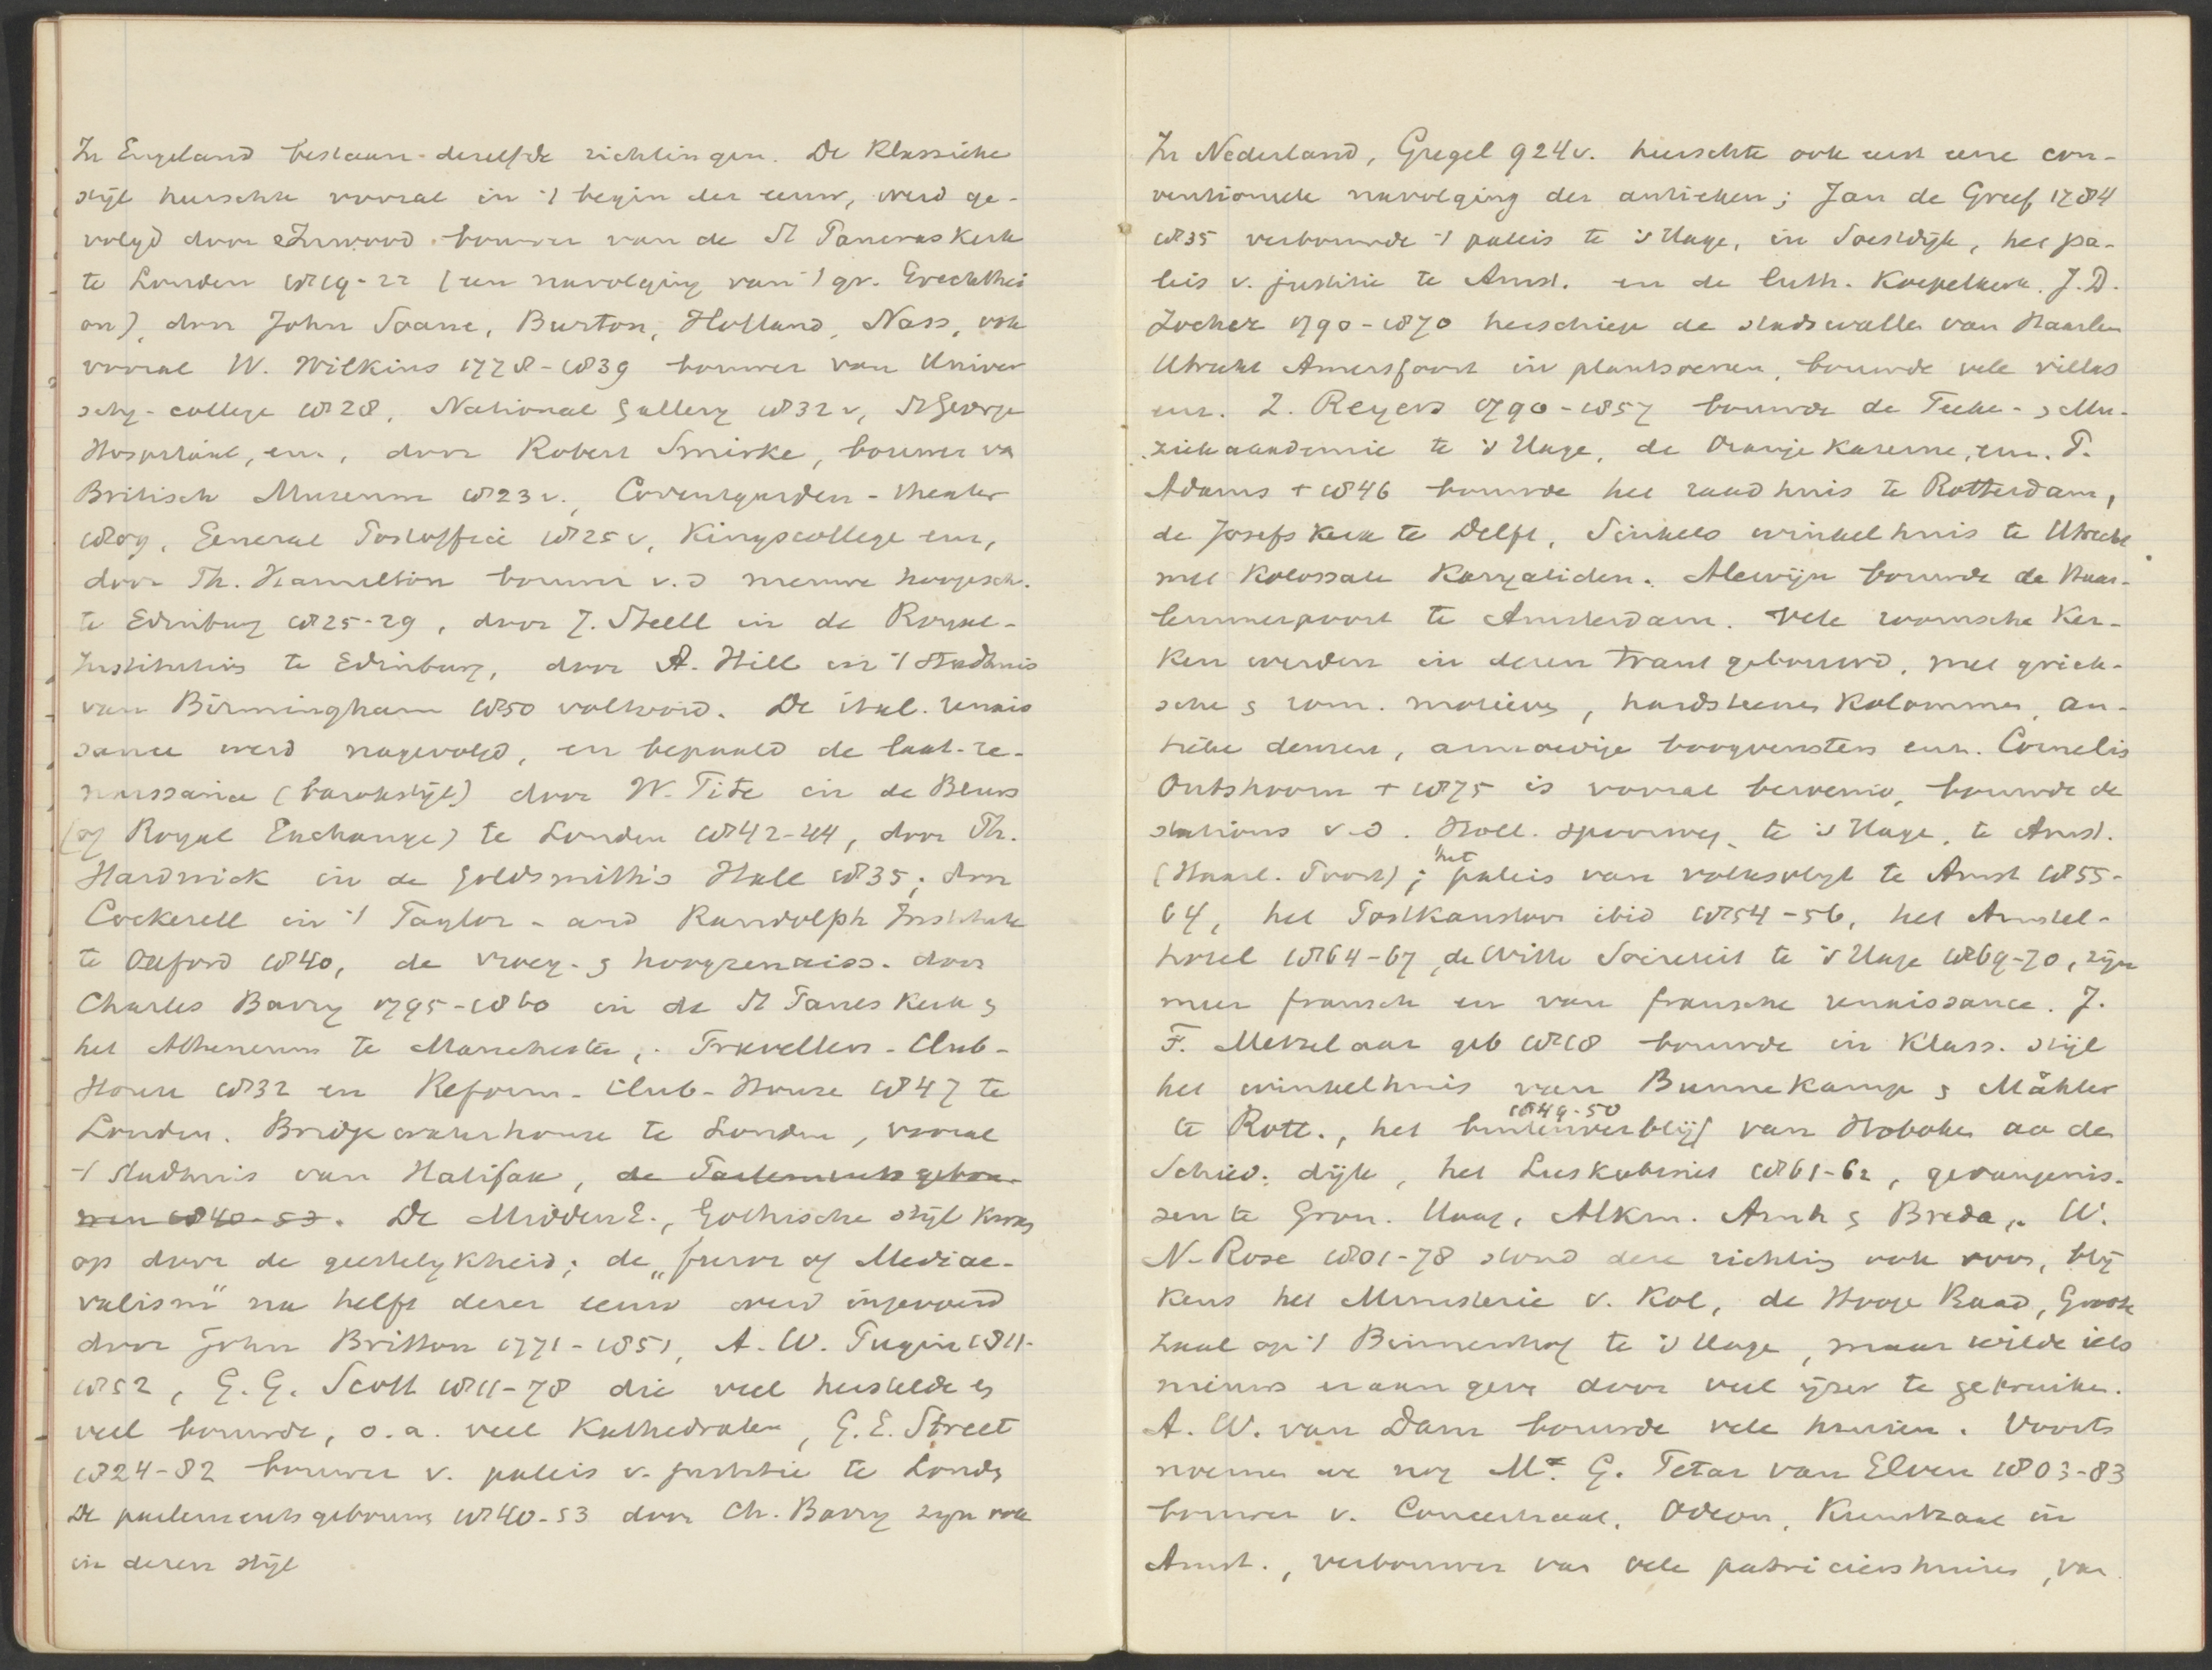 In Engeland bestaan dezelfde richtingen. De Klassieke
stijl heerschte vooral in 't begin der eeuw, werd ge-
volgd door Inwood bouwer van de St Pancras Kerk
te Londen 1819-22 (een navolging van 't gr. Erechthei
on), door John Soane, Burton, Holland, Nass, ook
vooral W. Wilkins 1778-1839 bouwer van Univer
sity-college 1828, National Gallery 1832 v, St George
Hospital, enz, door Robert Smirke, bouwer va
Britisch Museum 1823 v. Coventgarden-theater
1809, General Postoffice 1825 v, Kingscollege enz,
door Th. Hamelton bouwer v.d nieuwe hoogesch.
te Edinburg 1825-29, door J. Steell in de Royal-
Institution te Edinburg, door A. Hill in 't stadhuis
van Birmingham 1850 voltooid. De ital. renais
sance werd nagevolgd, en bepaald de laat-re-
naissance (barokstijl) door W. Tite in de Beurs
(of Royal Exchange) te Londen 1842-44, door Th.
Hardwick in de Goldsmith's Hall 1835; door
Cockerell in 't Taylor- and Randolph Institute
te Oxford 1840, de vroeg- & hoogrenaiss. door
Charles Barry 1795-1860 in de St Kerk &
het Atheneum te Manchester, Travellers-Club-
House 1832 en Reform-Club-House 1847 te
Londen. Bridgewaterhouse te Londen, vooral
't Stadhuis van Halifax, de Parlementsgebou-
wen 1840-53. De MiddenE., Gothische stijl kwam
op door de geestelykheid; de „furor of Mediae-
valism" na helft dezer eeuw werd ingevoerd
door John Britton 1771-1851, A. W. Pugin 1811-
1852, G. G. Scott 1811-78 die veel herstelde en
veel bouwde, o.a. veel Kathedralen, G. E. Street
1824-82 bouwer v. paleis v. justitie te Londen
De parlementsgebouwen 1840-53 door Ch. Barry zijn ook
in dezen stijl
In Nederland, Gugel 924v. heerschte ook eerst eene con-
ventioneele navolging der antieken; Jan de Greef 1784
1835 verbouwde 't paleis te 's Hage, in Soestdijk, het pa-
leis v. justitie te Amst. en de luth. Koepelkerk. J.D.
Zocher 1790-1870 herschiep de stadswallen van Haarlem
Utrecht Amersfoort in plantsoenen, bouwde vele villas
enz. Z. Reyers 1790-1857 bouwde de Teeke- & Mu-
ziekacademie te 's Hage, de Oranje Kazerne, enz. P.
Adams + 1846 bouwde het raadhuis te Rotterdam,
de Josefs Kerk te Delft, Sinkels winkelhuis te Utrecht
met Kolossale Karyatiden. Alewijn bouwde de Haar-
lemmerpoort te Amsterdam. Vele roomsche Ker-
ken werden in dezen trant gebouwd, met griek-
sche & rom. motieven, hardsteenen Kolommen, an-
tieke deuren, armoedige boogvensters enz. Cornelis
Outshoorn + 1875 is vooral beroemd, bouwde de
stations v.d. Holl. spoorweg te 's Hage, te Amst.
(Haarl. Poort); het paleis van volksvlyt te Amst 1855-
64, het Postkantoor ibid 1854-56, het Amstel-
hotel 1864-67, de Witte Societeit te 's Hage 1869-70, zijn
meer fransch en van fransche renaissance. J.
F. Metzelaar geb 1818 bouwde in Klass. stijl
het winkelhuis van Bunnekamp & Mähler
te Rott., het buitenverblijf 1849-50 van Hoboken aa de
Schied. dijk, het Leskabinet 1861-62, gevangenis-
sen te Gron. Haag, Alkm. Arnh & Breda. W.
N. Rose 1801-78 stond deze richting ook voor, blij
kens het Ministerie v. Kol, de Hooge Raad, Groote
Zaal op 't Binnenhof te 's Hage, maar wilde iets
nieuws eraan geven door veel ijzer te gebruiken.
A. W. van Dam bouwde vele huizen. Voorts
noemen we nog Mr. G. Tetar van Elven 1803-83
bouwer v. Concertzaal, Odeon, Kunstzaal in
Amst., verbouwer van vele patriciershuizen, van